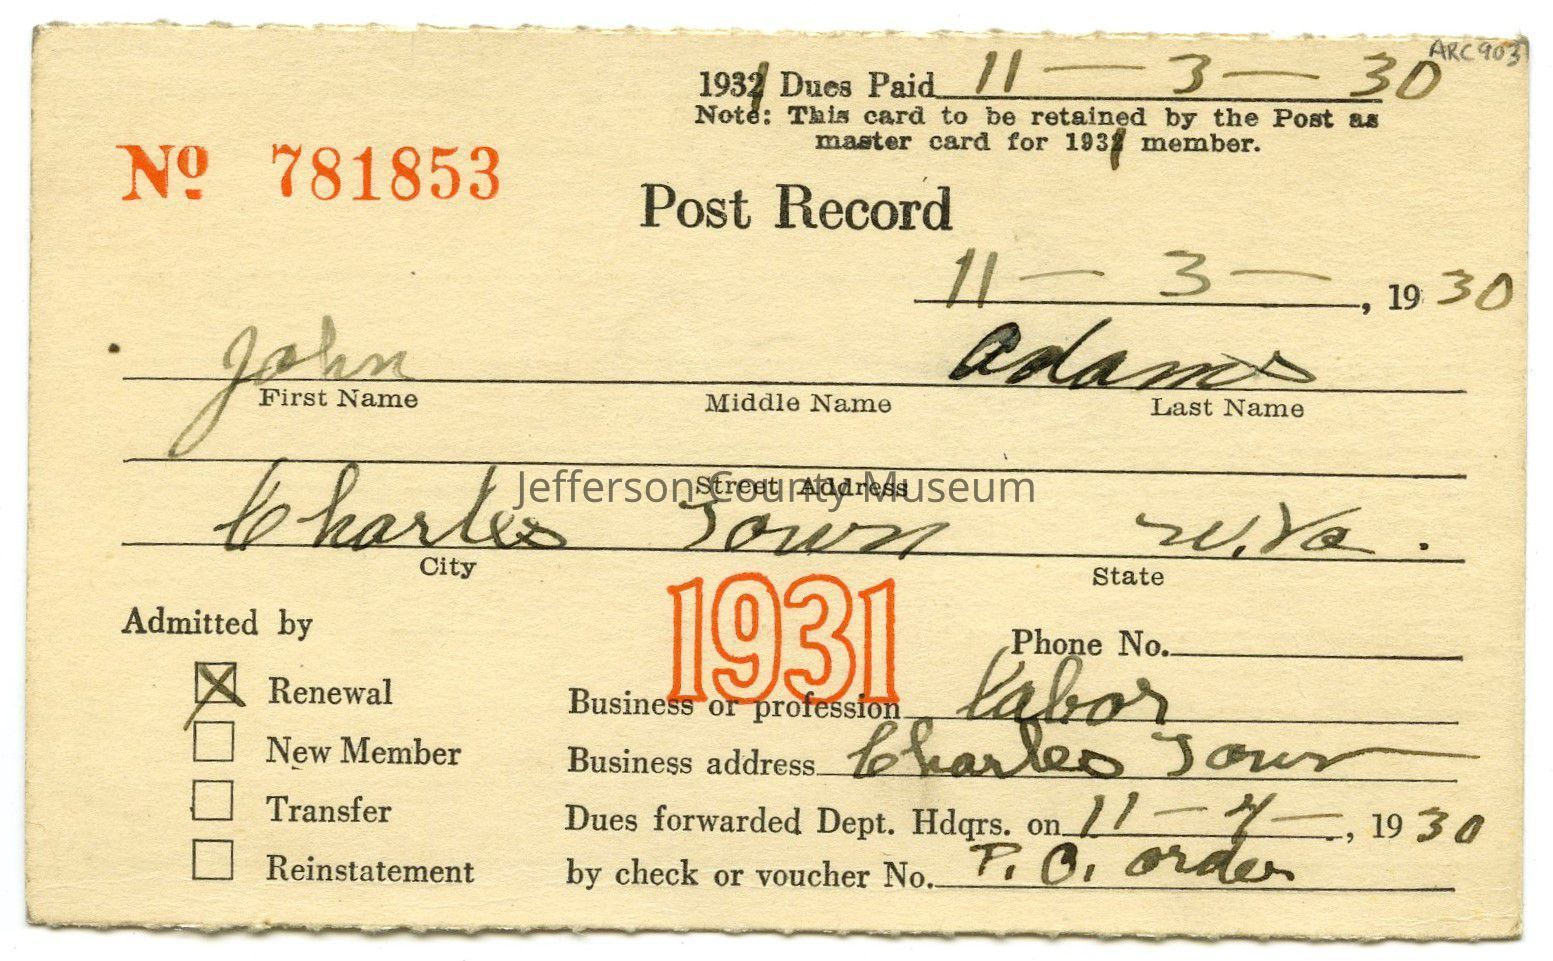 ARC903
1931 Dues Paid 11 — 3 — 30
Note: This card to be retained by the Post as
master card for 1931 member.
Nº 781853
Post Record
11 — 3 — , 19 30
John Adams
First Name Middle Name Last Name
Street Address
Jefferson County Museum
Charles Town W.Va.
City State
1931
Admitted by
Phone No.
Renewal
Business or profession Labor
New Member
Business address Charles Town
Transfer
Dues forwarded Dept. Hdqrs. on 11 — 4 — , 19 30
Reinstatement
by check or voucher No. P. O. order